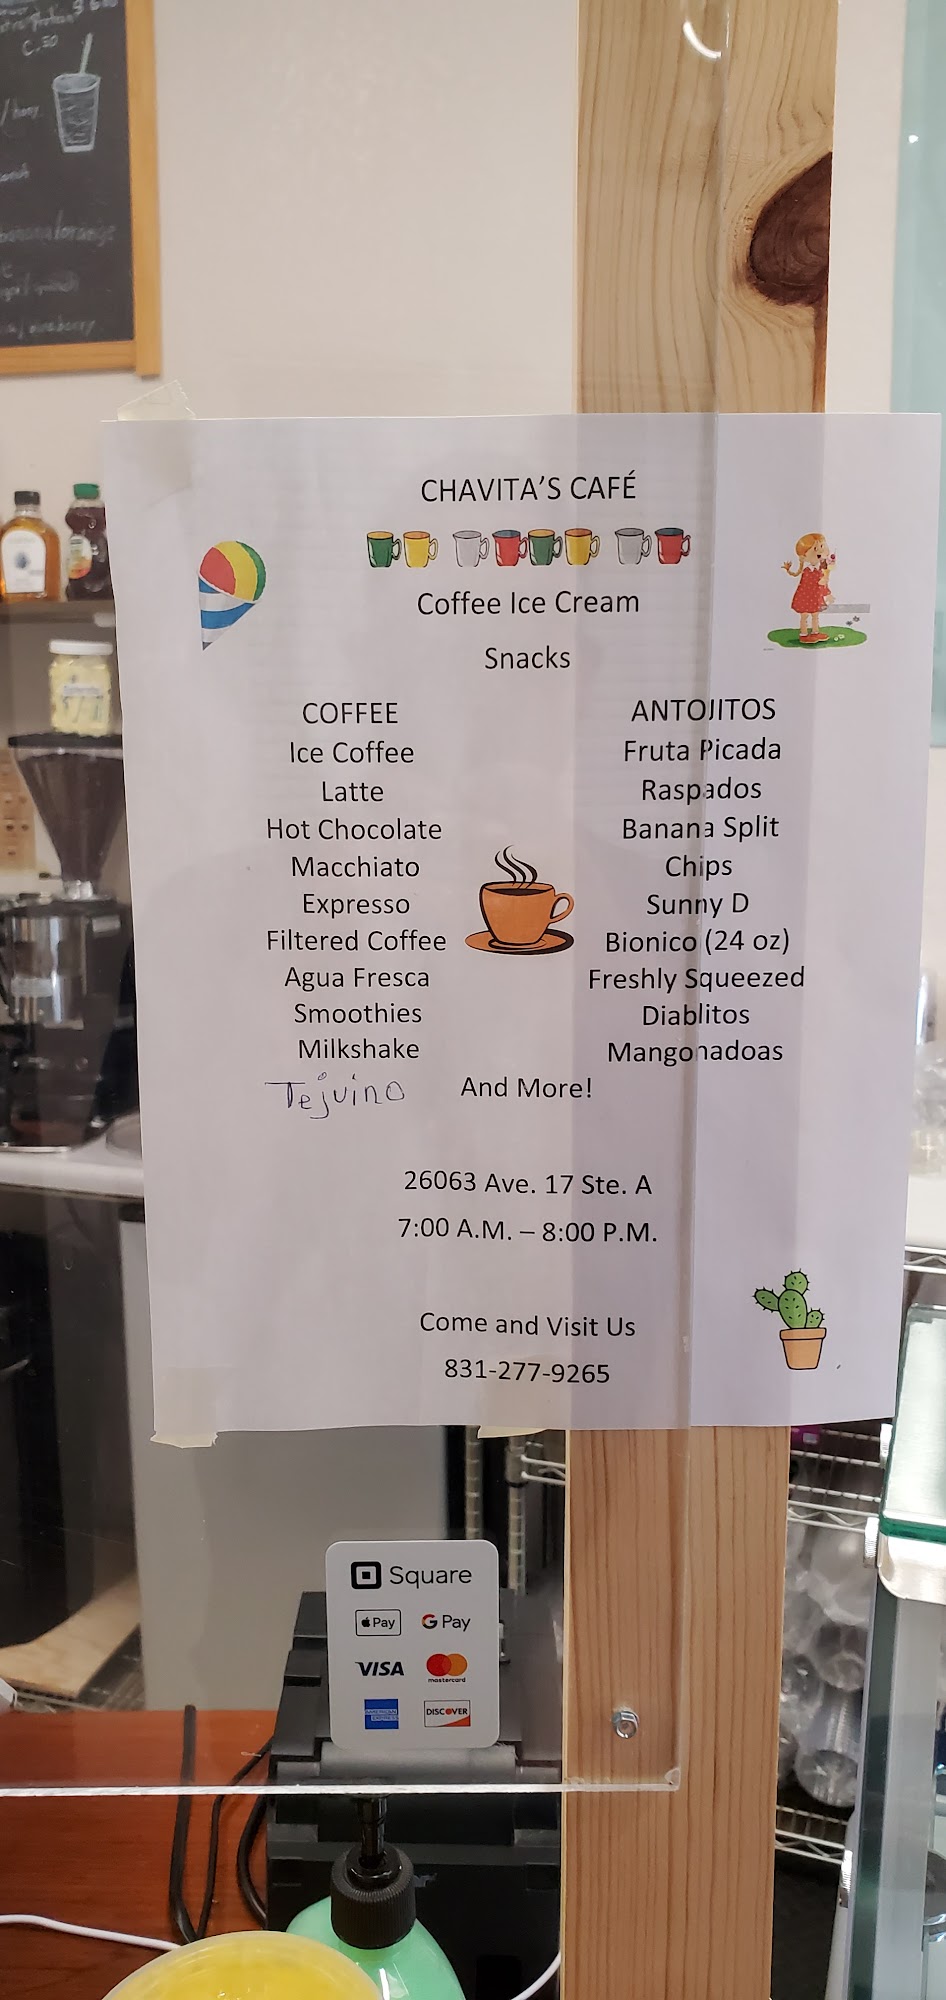 C.50
banana/orange
CHAVITA'S CAFÉ
Coffee Ice Cream
Snacks
COFFEE
Ice Coffee
Latte
Hot Chocolate
Macchiato
Expresso
Filtered Coffee
Agua Fresca
Smoothies
Milkshake
Tejuino
ANTOJITOS
Fruta Picada
Raspados
Banana Split
Chips
Sunny D
Bionico (24 oz)
Freshly Squeezed
Diablitos
Mangonadoas
And More!
26063 Ave. 17 Ste. A
7:00 A.M. – 8:00 P.M.
Come and Visit Us
831-277-9265
Square
Pay
G Pay
VISA
mastercard
AMERICAN EXPRESS
DISCOVER